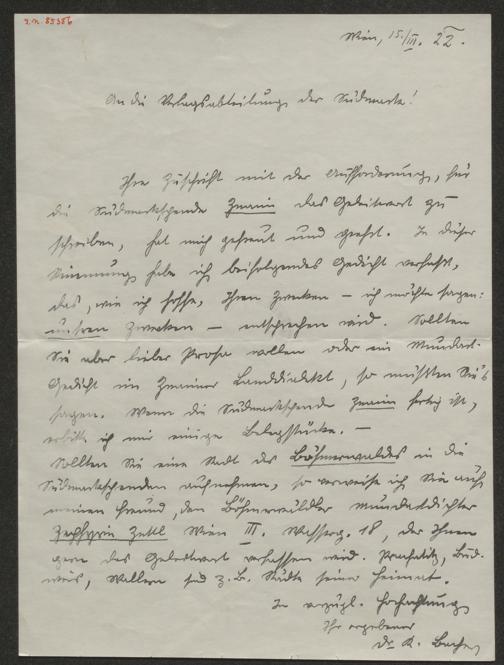 I.N. 85386
Wien, 15./III. 22.
An die Verlagsabteilung der Südmark!
Ihre Zuschrift mit der Aufforderung, für
die Südmarkspende Znaim das Geleitwort zu
schreiben, hat mich gefreut und geehrt. In dieser
Stimmung habe ich beifolgendes Gedicht verfaßt,
das, wie ich hoffe, Ihren Zwecken – ich möchte sagen:
unsren Zwecken – entsprechen wird. Sollten
Sie aber lieber Prosa wollen oder ein Mundart-
Gedicht im Znaimer Landdialekt, so müßten Sie's
sagen. Wenn die Südmarkspende Znaim fertig ist,
erbitte ich mir einige Belegstücke. –
Sollten Sie eine Stadt des Böhmerwaldes in die
Südmarkspenden aufnehmen, so verweise ich Sie auf
meinen Freund, den Böhmerwäldler Mundartdichter
Zephyrin Zettl Wien III. 18, der Ihnen
gern das Geleitwort verfassen wird. Prachatitz, Bud-
weis, Wallern sind z. B. Städte seiner Heimat.
In vorzügl. Hochachtung
Ihr ergebener
Dr. K. Bacher